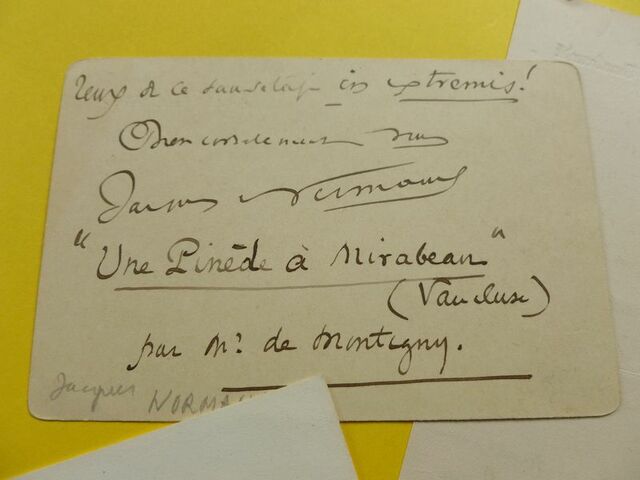 reux de ce sauvetage in extremis!
Bien cordialement vôtre
Jacques Normand
"Une Pinède à Mirabeau"
(Vaucluse)
par Mr. de Montigny.
Jacques NORMA